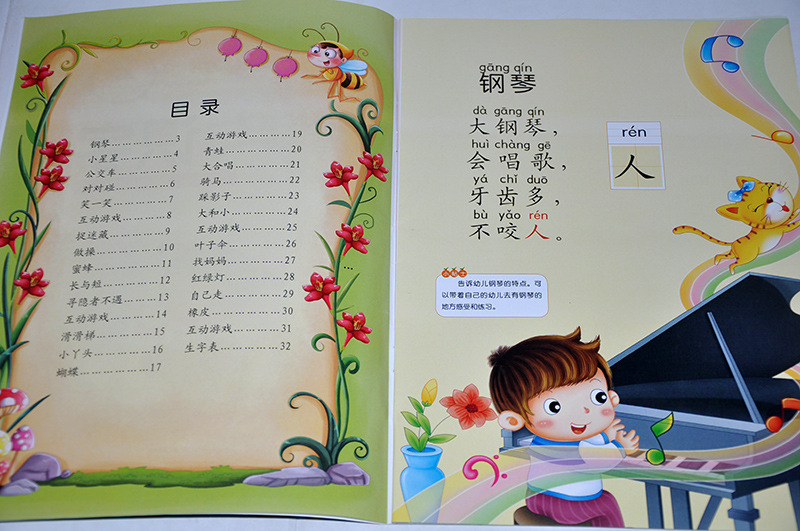 目录
钢琴………………3
小星星……………4
公交车……………5
对对碰……………6
笑一笑……………7
互动游戏…………8
捉迷藏……………9
做操………………10
蜜蜂………………11
长与短……………12
寻隐者不遇………13
互动游戏…………14
滑滑梯……………15
小丫头……………16
蝴蝶………………17
互动游戏…………19
青蛙………………20
大合唱……………21
骑马………………22
踩影子……………23
大和小……………24
互动游戏…………25
叶子伞……………26
找妈妈……………27
红绿灯……………28
自己走……………29
橡皮………………30
互动游戏…………31
生字表……………32
gāng qín
钢琴
dà gāng qín
大钢琴，
huì chàng gē
会唱歌，
yá chǐ duō
牙齿多，
bù yǎo rén
不咬人。
rén
人
告诉幼儿钢琴的特点。可
以带着自己的幼儿去有钢琴的
地方感受和练习。